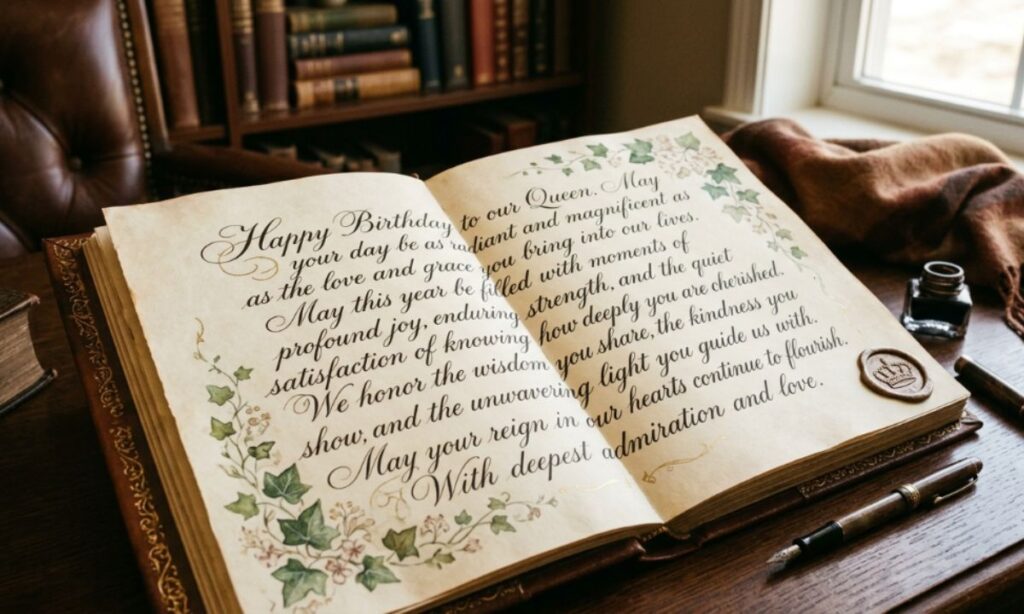 Happy Birthday to our Queen. May
your day be as radiant and magnificent as
as the love and grace you bring into our lives.
May this year be filled with moments of
profound joy, enduring strength, and the quiet
satisfaction of knowing how deeply you are cherished.
We honor the wisdom you share, the kindness you
show, and the unwavering light you guide us with.
May your reign in our hearts continue to flourish.
With deepest admiration and love.